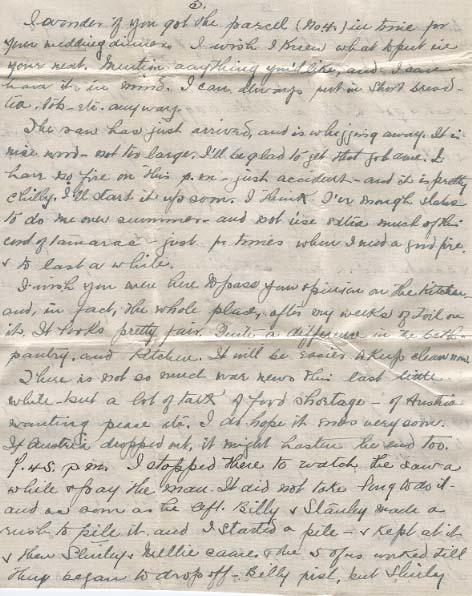 3.
I wonder if you got the parcel (No 4.) in time for
your wedding dinner. I wish I knew what to put in
your next. Mention anything you'd like, and I can
have it in mind. I can always put in short bread -
tea etc - etc. anyway.
The saw has just arrived, and is whizzing away. It is
nice wood - not too large. I'll be glad to get that job done. I
have no fire on this p.m - just accident - and it is pretty
chilly. I'll start it up soon. I think I've enough slabs
to do me over summer - and not use extra much of this
cord of tamarac - just for times when I need a good fire
& to last a while.
I wish you were here to pass your opinion on the kitchen
and, in fact, the whole place, after my weeks of toil on
it. It looks pretty fair. Quite a difference in the bath -
pantry, and kitchen. It will be easier to keep clean now.
There is not so much war news this last little
while - but a lot of talk of food shortage - of Austria
wanting peace etc. I do hope it ends very soon.
If Austria dropped out, it might hasten the end too.
7.45. p.m. I stopped there to watch the saw a
while & pay the man. It did not take long to do it -
and as soon as he left Billy & Stanley made a
rush to pile it and I started a pile - & kept at it
& then Shirley & Nellie came & the 5 of us worked till
they began to drop off - Billy first, but Shirley